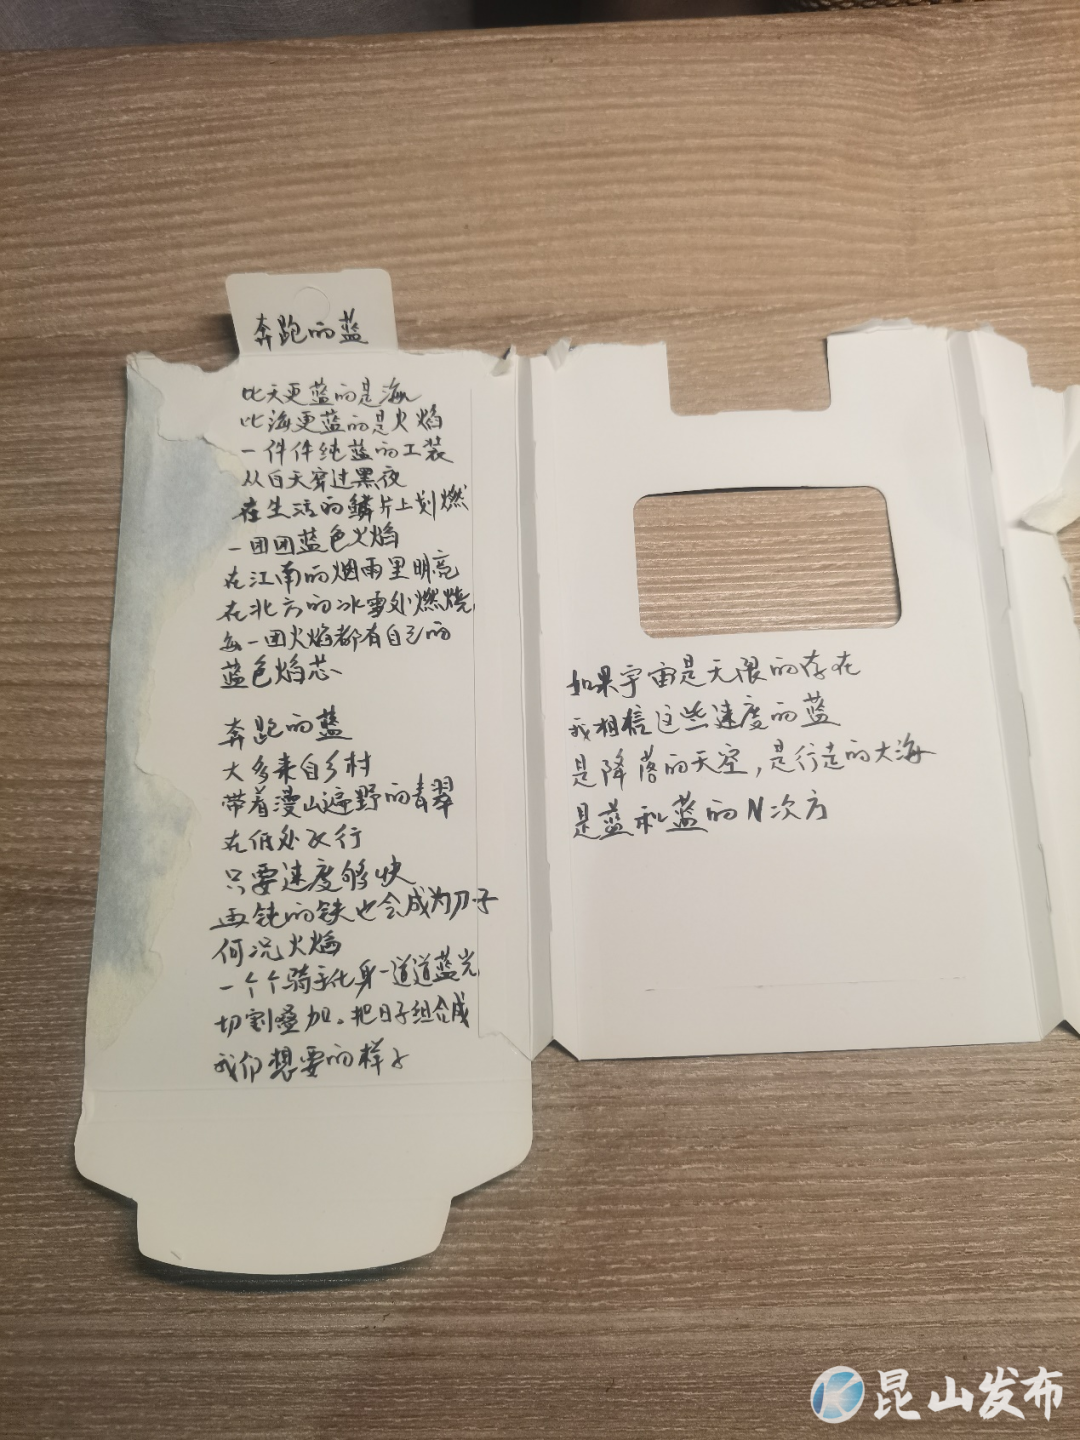 奔跑的蓝
比天更蓝的是海
比海更蓝的是火焰
一件件纯蓝的工装
从白天穿过黑夜
在生活的鳞片上划燃
一团团蓝色火焰
在江南的烟雨里明亮
在北方的冰雪处燃烧
每一团火焰都有自己的
蓝色焰芯
奔跑的蓝
大多来自乡村
带着漫山遍野的青翠
在低处飞行
只要速度够快
再钝的铁也会成为刀子
何况火焰
一个个骑手化身一道道蓝光
切割叠加。把日子组合成
我们想要的样子
如果宇宙是无限的存在
我相信这些速度的蓝
是降落的天空，是行走的大海
是蓝和蓝的N次方
昆山发布